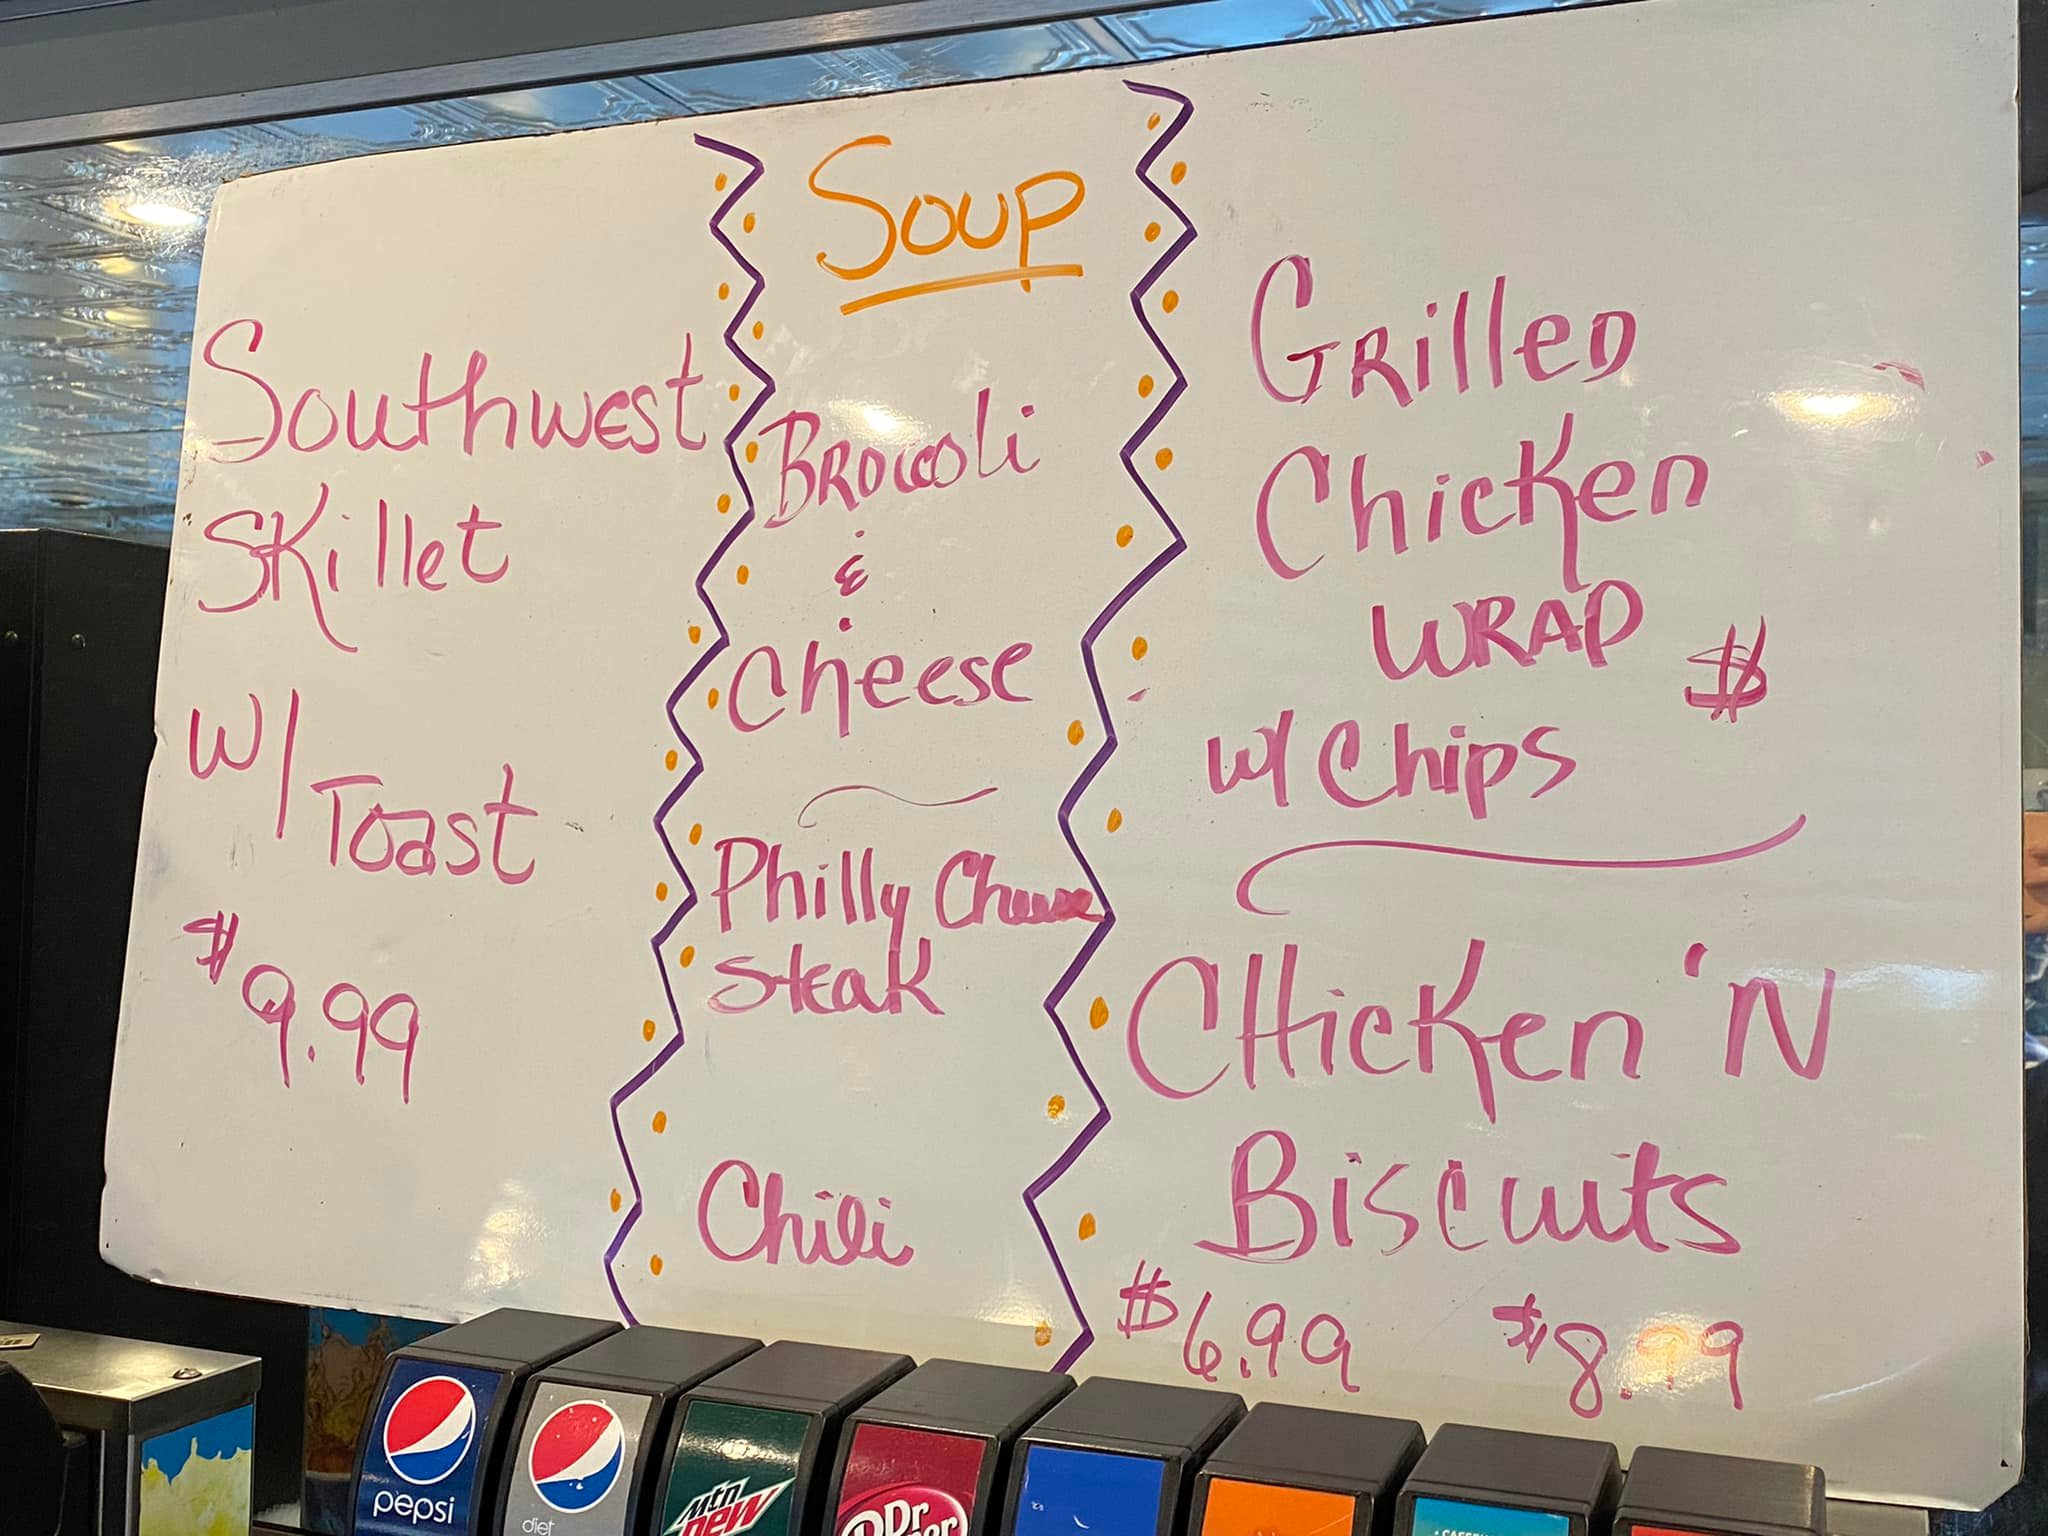 Southwest
Skillet
w/ Toast
$9.99
Soup
Broccoli
&
Cheese
Philly Cheese
Steak
Chili
Grilled
Chicken
WRAP
$
w/ Chips
Chicken 'N
Biscuits
$6.99 $8.99
pepsi
diet
mtn
DEW
Dr